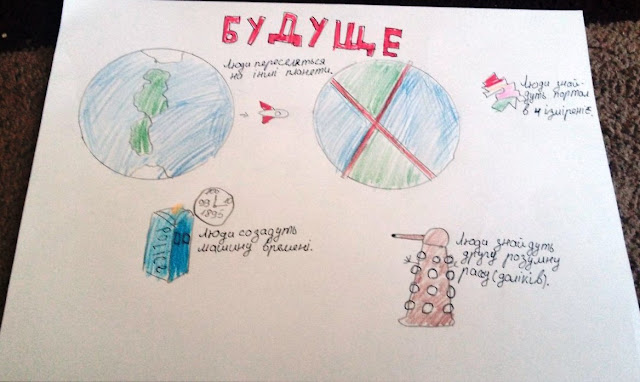 БУДУЩЕ
Люди переселяться
на інші планети.
Люди знай-
дуть портал
в 4 ізмірені.
Люди созадуть
машину времені.
Люди знайдуть
другу розумну
расу (даліків).